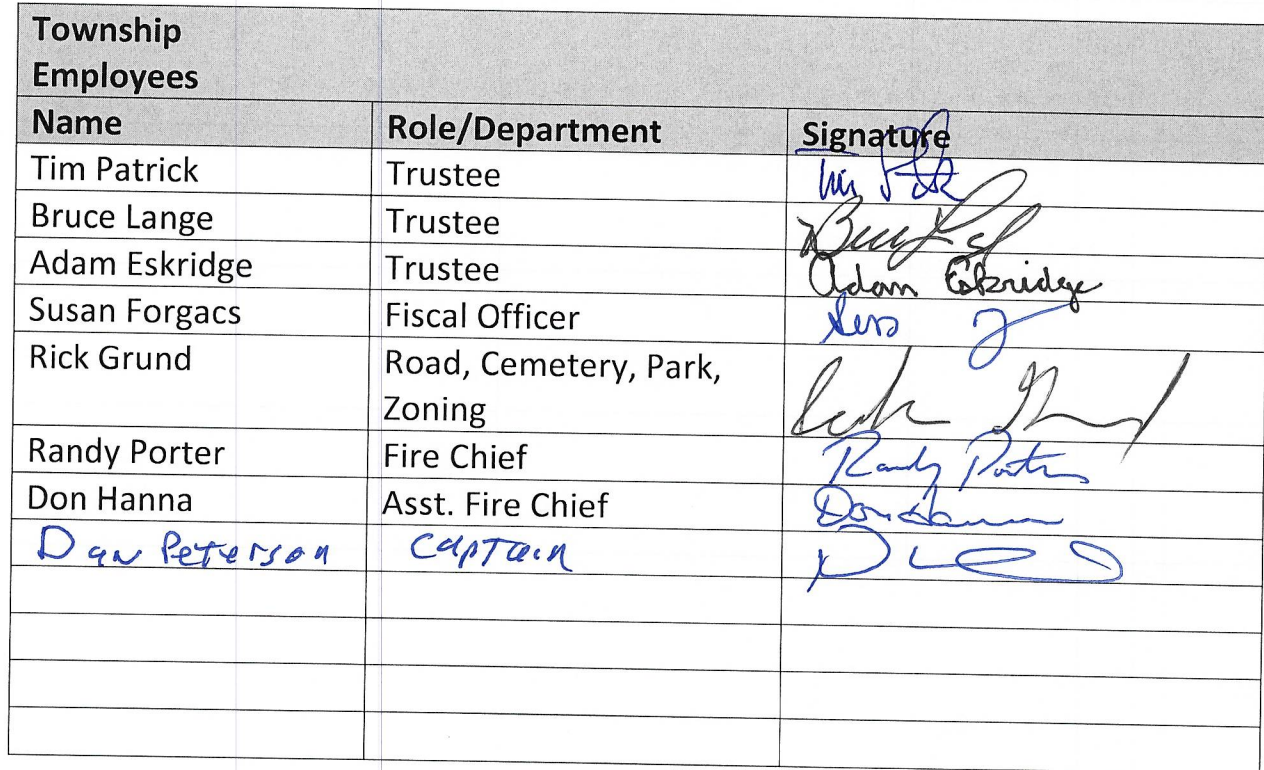 Township
Employees
Name Role/Department Signature
Tim Patrick Trustee
Bruce Lange Trustee
Adam Eskridge Trustee Adam Eskridge
Susan Forgacs Fiscal Officer
Rick Grund Road, Cemetery, Park,
Zoning
Randy Porter Fire Chief Randy Porter
Don Hanna Asst. Fire Chief Don Hanna
Dan Peterson Captain